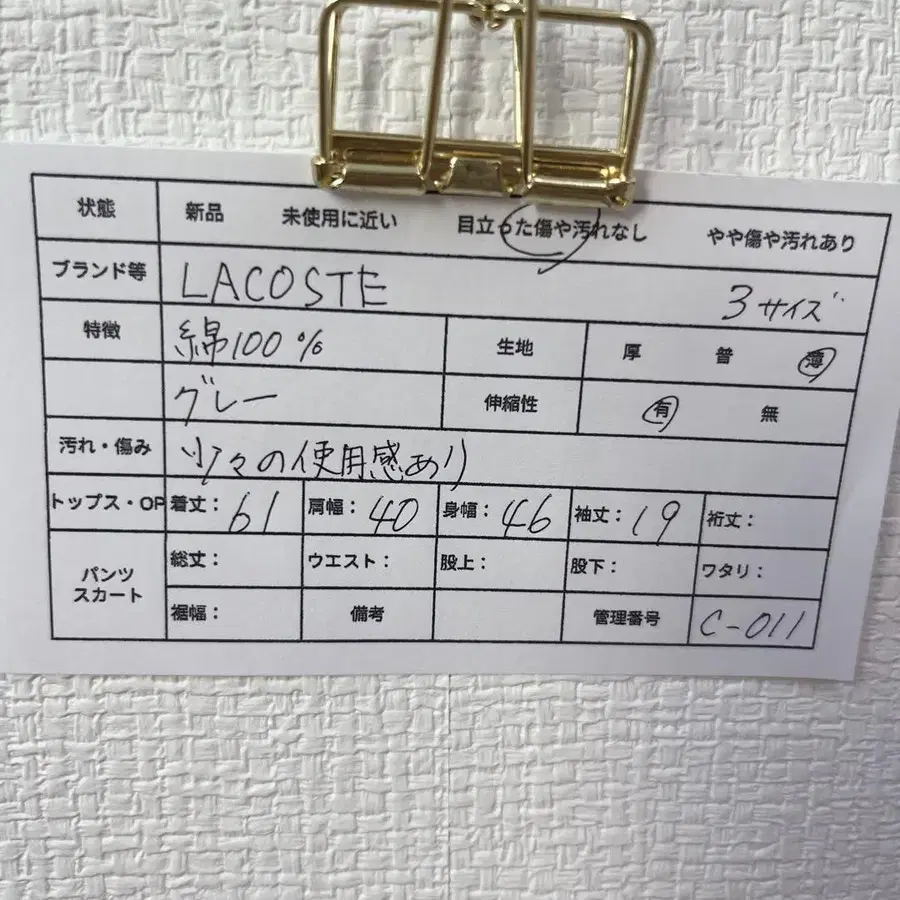 状態 新品 未使用に近い 目立った傷や汚れなし やや傷や汚れあり
ブランド等 LACOSTE 3サイズ
特徴 綿100% 生地 厚 普 薄
グレー 伸縮性 有 無
汚れ・傷み 少々の使用感あり
トップス・OP 着丈：61 肩幅：40 身幅：46 袖丈：19 裄丈：
パンツ スカート 総丈： ウエスト： 股上： 股下： ワタリ：
裾幅： 備考 管理番号 C-011